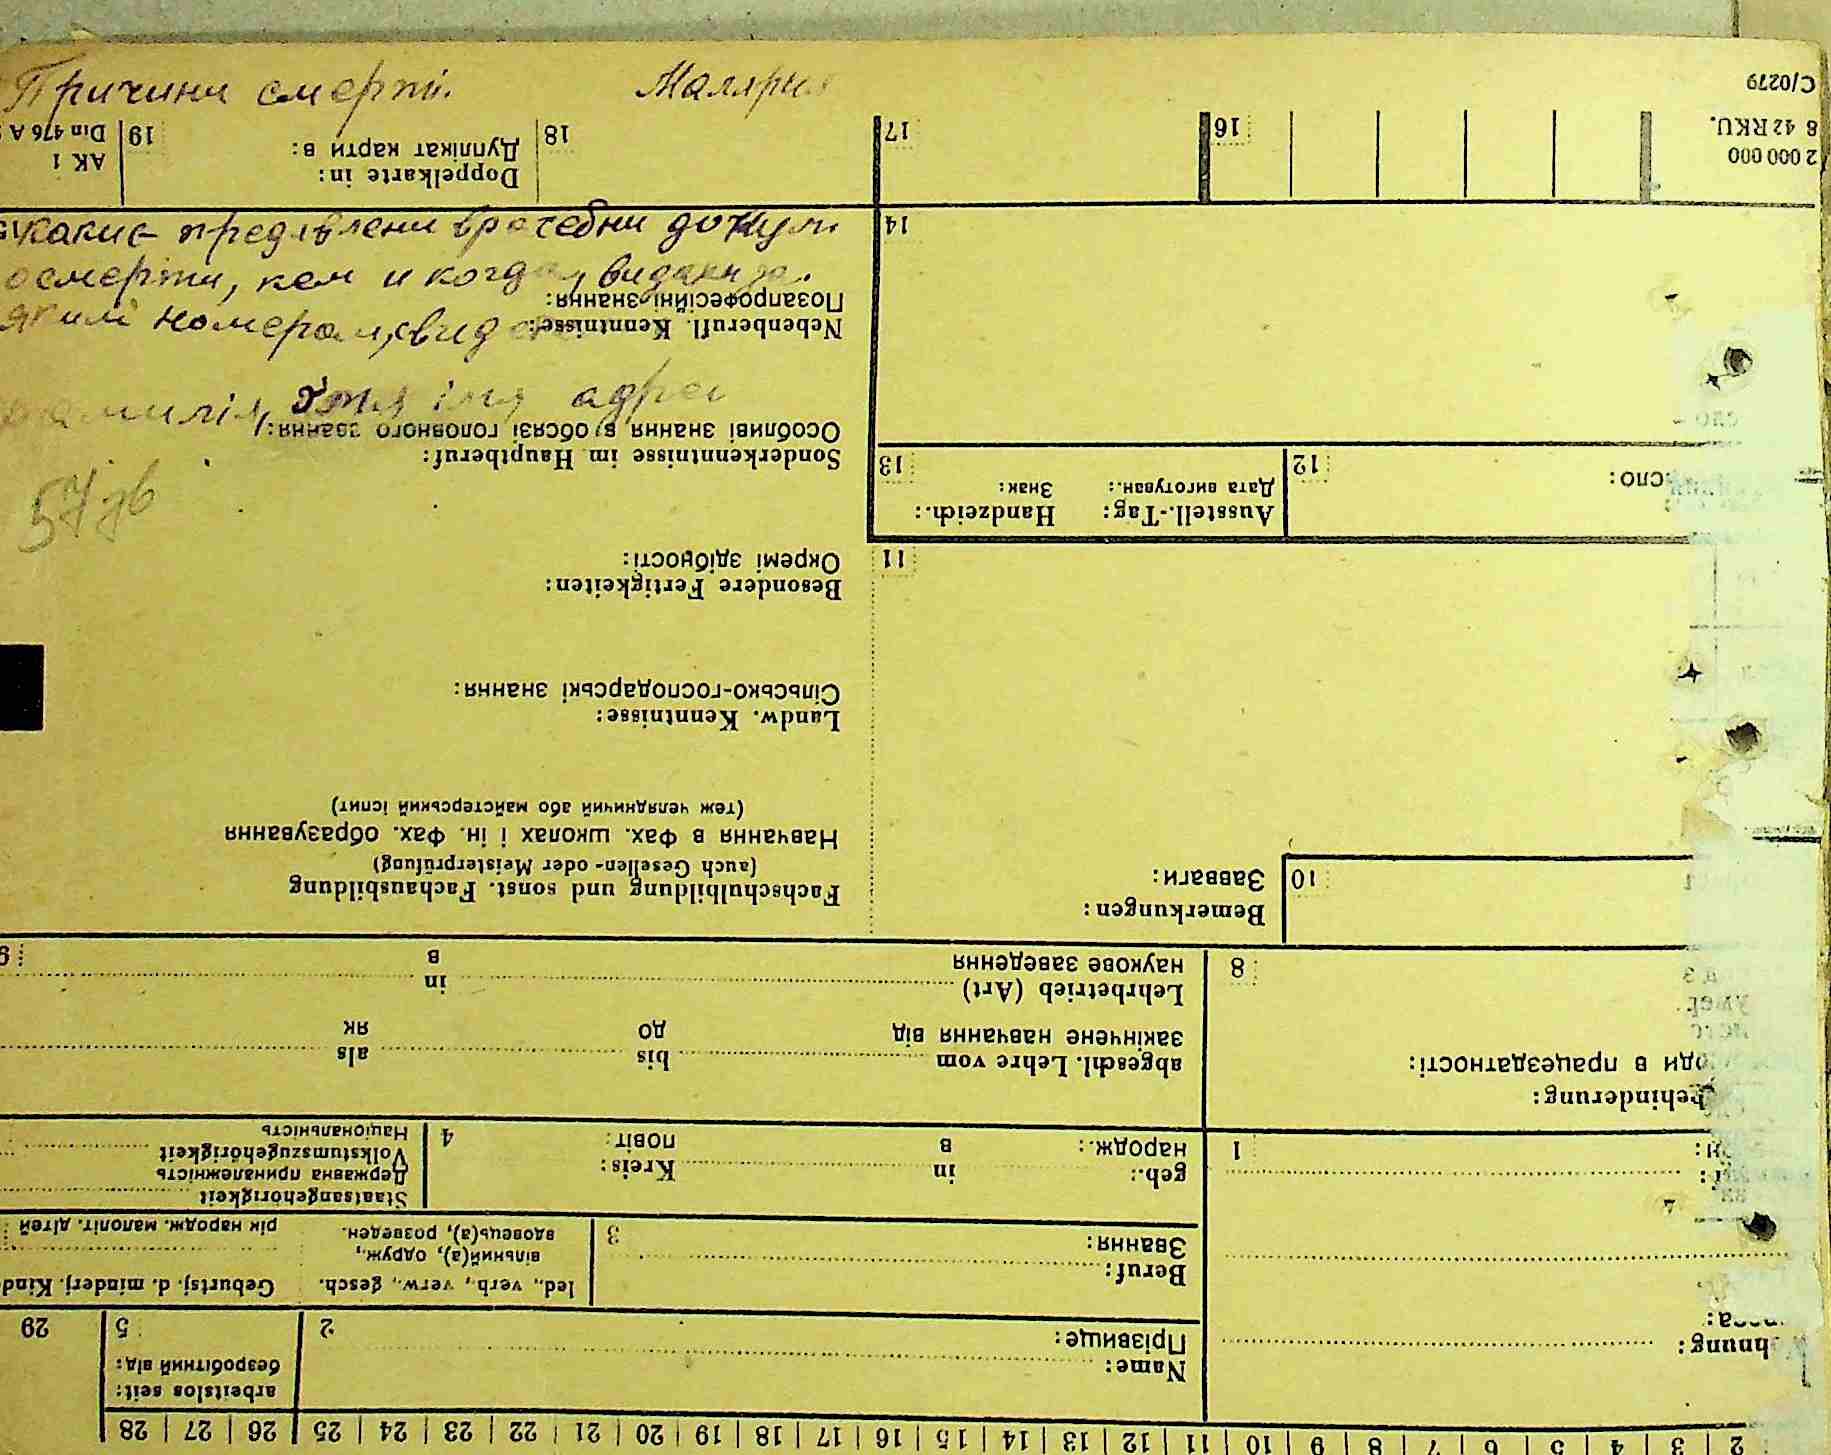 Причини смерти. Малярия
какие предявлени врачебни докум.
осмерти, кем и когда, видани за.
яким номером, свид
фамилія, Імя адрес
57 зв
2 | 3 | 4 | 5 | 6 | 7 | 8 | 9 | 10 | 11 | 12 | 13 | 14 | 15 | 16 | 17 | 18 | 19 | 20 | 21 | 22 | 23 | 24 | 25 | 26 | 27 | 28
hnung:
Name:
Прізвище:
2
arbeitslos seit:
безробітний від:
5
29
Beruf:
Звання:
3
led., verh., verw., gesch.
вільний(а), одруж.,
вдовець(а), розведен.
Geburtsj. d. minderj. Kind
рік народж. малоліт. дітей
1
geb.: in Kreis:
народж.: в повіт:
4
Staatsangehörigkeit
Державна приналежність
Volkstumszugehörigkeit
Національність
ehinderung:
оди в працездатності:
8
abgeschl. Lehre vom bis als
закінчене навчання від до як
Lehrbetrieb (Art) in
наукове заведення в
9
10
Bemerkungen:
Завваги:
Fachschulbildung und sonst. Fachausbildung
(auch Gesellen- oder Meisterprüfung)
Навчання в Фах. школах і ін. Фах. образування
(теж челядничий або майстерський іспит)
Landw. Kenntnisse:
Сільсько-господарські знання:
Besondere Fertigkeiten:
Окремі здібності:
11
12
Ausstell.-Tag: Handzeich.:
Дата виготуван.: Знак:
13
Sonderkenntnisse im Hauptberuf:
Особливі знання в обсязі головного звання:
Nebenberufl. Kenntnisse:
Позапрофесійні знання:
14
2 000 000
8 42 RKU.
C/0279
16
17
18
Doppelkarte in:
Дуплікат карти в:
19
AK 1
Din 476 A